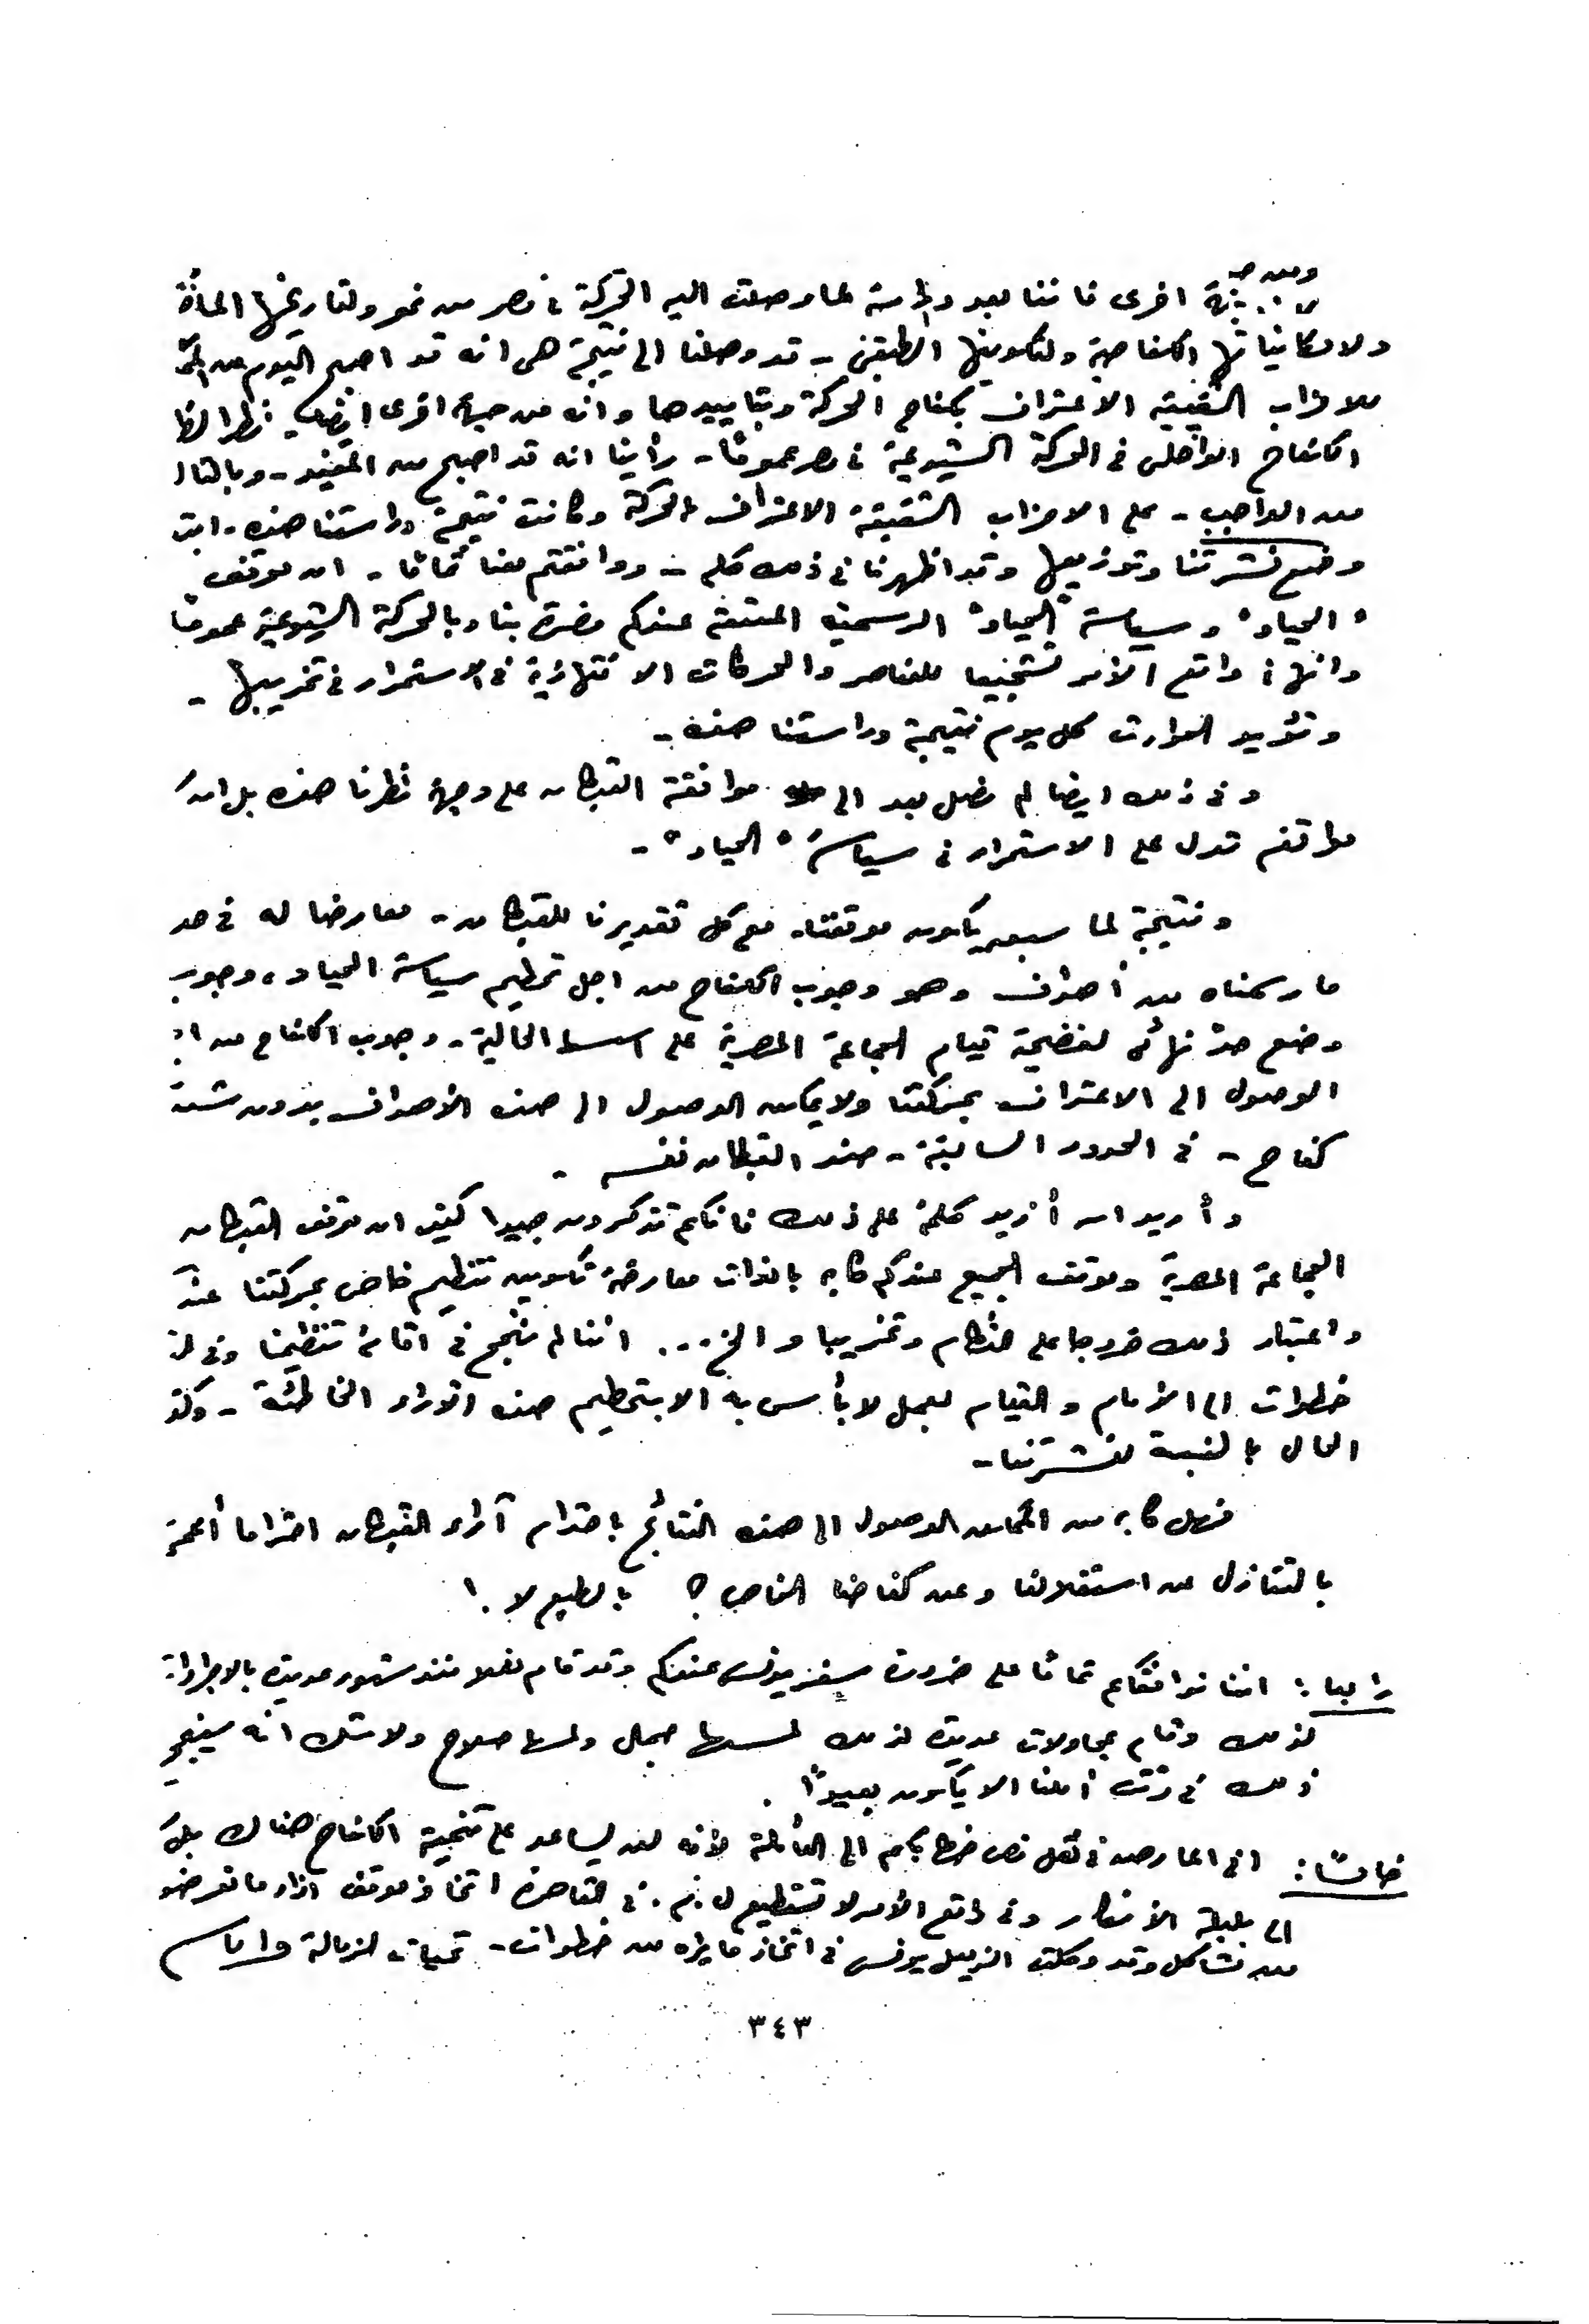 ومن جهة اخرى فاننا بعد دراسة لما وصلت اليه الحركة فى مصر من نمو ولتاريخها
ولامكانياتها الكفاحية ولتكوينها الطبقى - قد وصلنا الى نتيجة هى انه قد اصبح اليوم من
للاحزاب الشقيقة الاعتراف بكفاح الحركة وبتاييدها وانه من جهة اخرى ايضا - نظرا
الكفاح الداخلى فى الحركة الشيوعية فى مصر عموما - رأينا انه قد اصبح من المفيد - وبالتالى
من الواجب - على الاحزاب الشقيقة الاعتراف بالحركة وكانت نتيجة دراستنا هذه -
وضع نشرتنا وتوزيعها وقد اظهرنا فى ذلك كله - ووافقتم معنا تماما - ان موقف
" الحياد " وسياسة " الحياد " الرسمية المتبعة عندكم مضرة بنا وبالحركة الشيوعية عموما
وانها فى واقع الأمر تشجيعا للعناصر والحركات الانتهازية فى الاستمرار فى تخريبها -
وتؤيد الحوادث كل يوم نتيجة دراستنا هذه -
وفى ذلك ايضا لم نصل بعد الى موافقة القبطان على وجهة نظرنا هذه بل ان
مواقفه تدل على الاستمرار فى سياسة " الحياد " -
ونتيجة لما سبق يكون موقفنا - مع كل تقديرنا للقبطان - معارضا له فى حد
ما رسمناه من أهداف وهو وجوب الكفاح من اجل تحطيم سياسة الحياد ، وجوب
وضع حد نهائى لفضيحة قيام الجماعة المصرية على اسسها الحالية - وجوب الكفاح من اجل
الوصول الى الاعتراف بحركتنا ولا يمكن الوصول الى هذه الأهداف بدون
كفاح - فى الحدود السابقة - ضد القبطان نفسه -
وأريد ان أزيد كلمة على ذلك فانكم تذكرون جيدا كيف ان موقف القبطان
الجماعة المصرية وموقف الجميع عندكم كان بالذات معارضة تكوين تنظيم خاص بحركتنا
واعتبار ذلك خروجا على النظام وتخريبا و الخ ... اننا لم ننجح فى اقامة تنظيمنا وفى
خطوات الى الأمام والقيام بعمل لا بأس به الا بتحطيم هذه الآراء الخاطئة -
الحال بالنسبة لنشرتنا -
فهل كان من الممكن الوصول الى هذه النتائج باحترام آراء القبطان احتراما أعمى
بالتنازل عن استقلالنا وعن كفاحنا الخاص ؟ بالطبع لا . !
رابعا : اننا نوافقكم تماما على ضرورة سفر يونس عندكم وقد قام فعلا منذ شهور عديدة بالاجراءات
لذلك وقام بمحاولات عديدة لذلك ولا شك انه سينجح
ذلك فى وقت أملنا الا يكون بعيدا .
خامسا : انى اعارض فى نقل نص خطابكم الى العائلة لأنه لن يساعد على تنمية الكفاح هناك بل
الى بلبلة الأفكار وفى واقع الأمر لا تستطيع ل . م . فى القاهرة اتخاذ موقف ازاء ما تعرضه
من مشاكل وقد وكلت الزميل يونس فى اتخاذ ما يراه من خطوات - تحيات الزمالة
٣٤٣